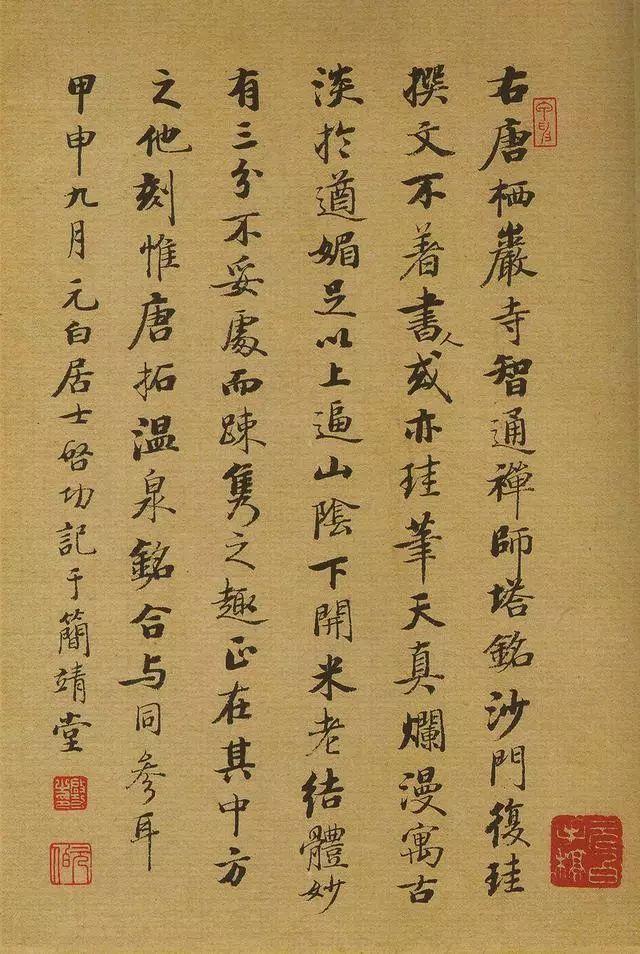 右唐栖巖寺智通禪師塔銘沙門復珪
撰文不著書人或亦珪筆天真爛漫寓古
淡於遒媚足以上逼山陰下開米老結體妙
有三分不妥處而踈雋之趣正在其中方
之他刻惟唐拓温泉銘合与同參耳
甲申九月元白居士啓功記于簡靖堂
元白